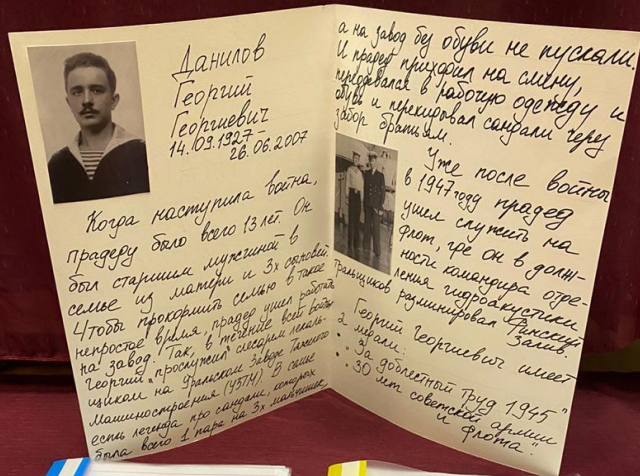 Данилов
Георгий
Георгиевич
14.09.1927 –
26.06.2007
Когда наступила война,
прадеду было всего 13 лет. Он
был старшим мужчиной в
семье из матери и 3х сыновей.
Чтобы прокормить семью в такое
непростое время, прадед ушел работать
на завод. Так, в течение всей войны
Георгий "прослужил" слесарем лекаль-
щиком на Уральском Заводе Тяжелого
Машиностроения (УЗТМ). В семье
есть легенда про сандали, которых
была всего 1 пара на 3х мальчишек,
а на завод без обуви не пускали.
И прадед приходил на смену,
переодевался в рабочую одежду и
обувь и перекидовал сандали через
забор братьям.
Уже после войны
в 1947 году прадед
ушел служить на
флот, где он в долж-
ности командира отде-
ления гидроакустики
тральщиков разминировал Финский
Залив.
Георгий Георгиевич имеет
2 медали:
• За доблестный труд 1945"
• 30 лет советской армии
и флота.